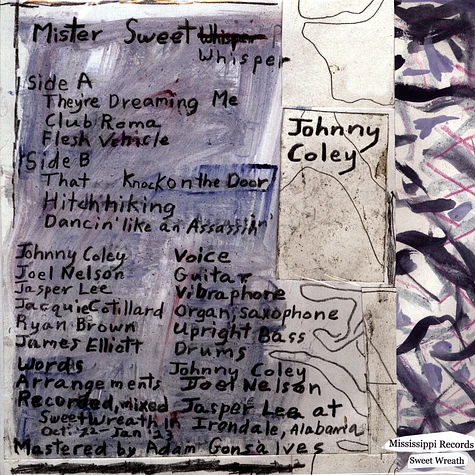 Mister Sweet Whisper
Whisper
Side A
They're Dreaming Me
Club Roma
Flesh Vehicle
Side B
That Knock on the Door
Hitchhiking
Dancin' like an Assassin
Johnny
Coley
Johnny Coley Voice
Joel Nelson Guitar
Jasper Lee Vibraphone
Jacquie Cotillard Organ, saxophone
Ryan Brown Upright Bass
James Elliott Drums
Words Johnny Coley
Arrangements Joel Nelson
Recorded, mixed Jasper Lee at
Sweet Wreath in Irondale, Alabama
Oct. '22 - Jan '23
Mastered by Adam Gonsalves
Mississippi Records
Sweet Wreath